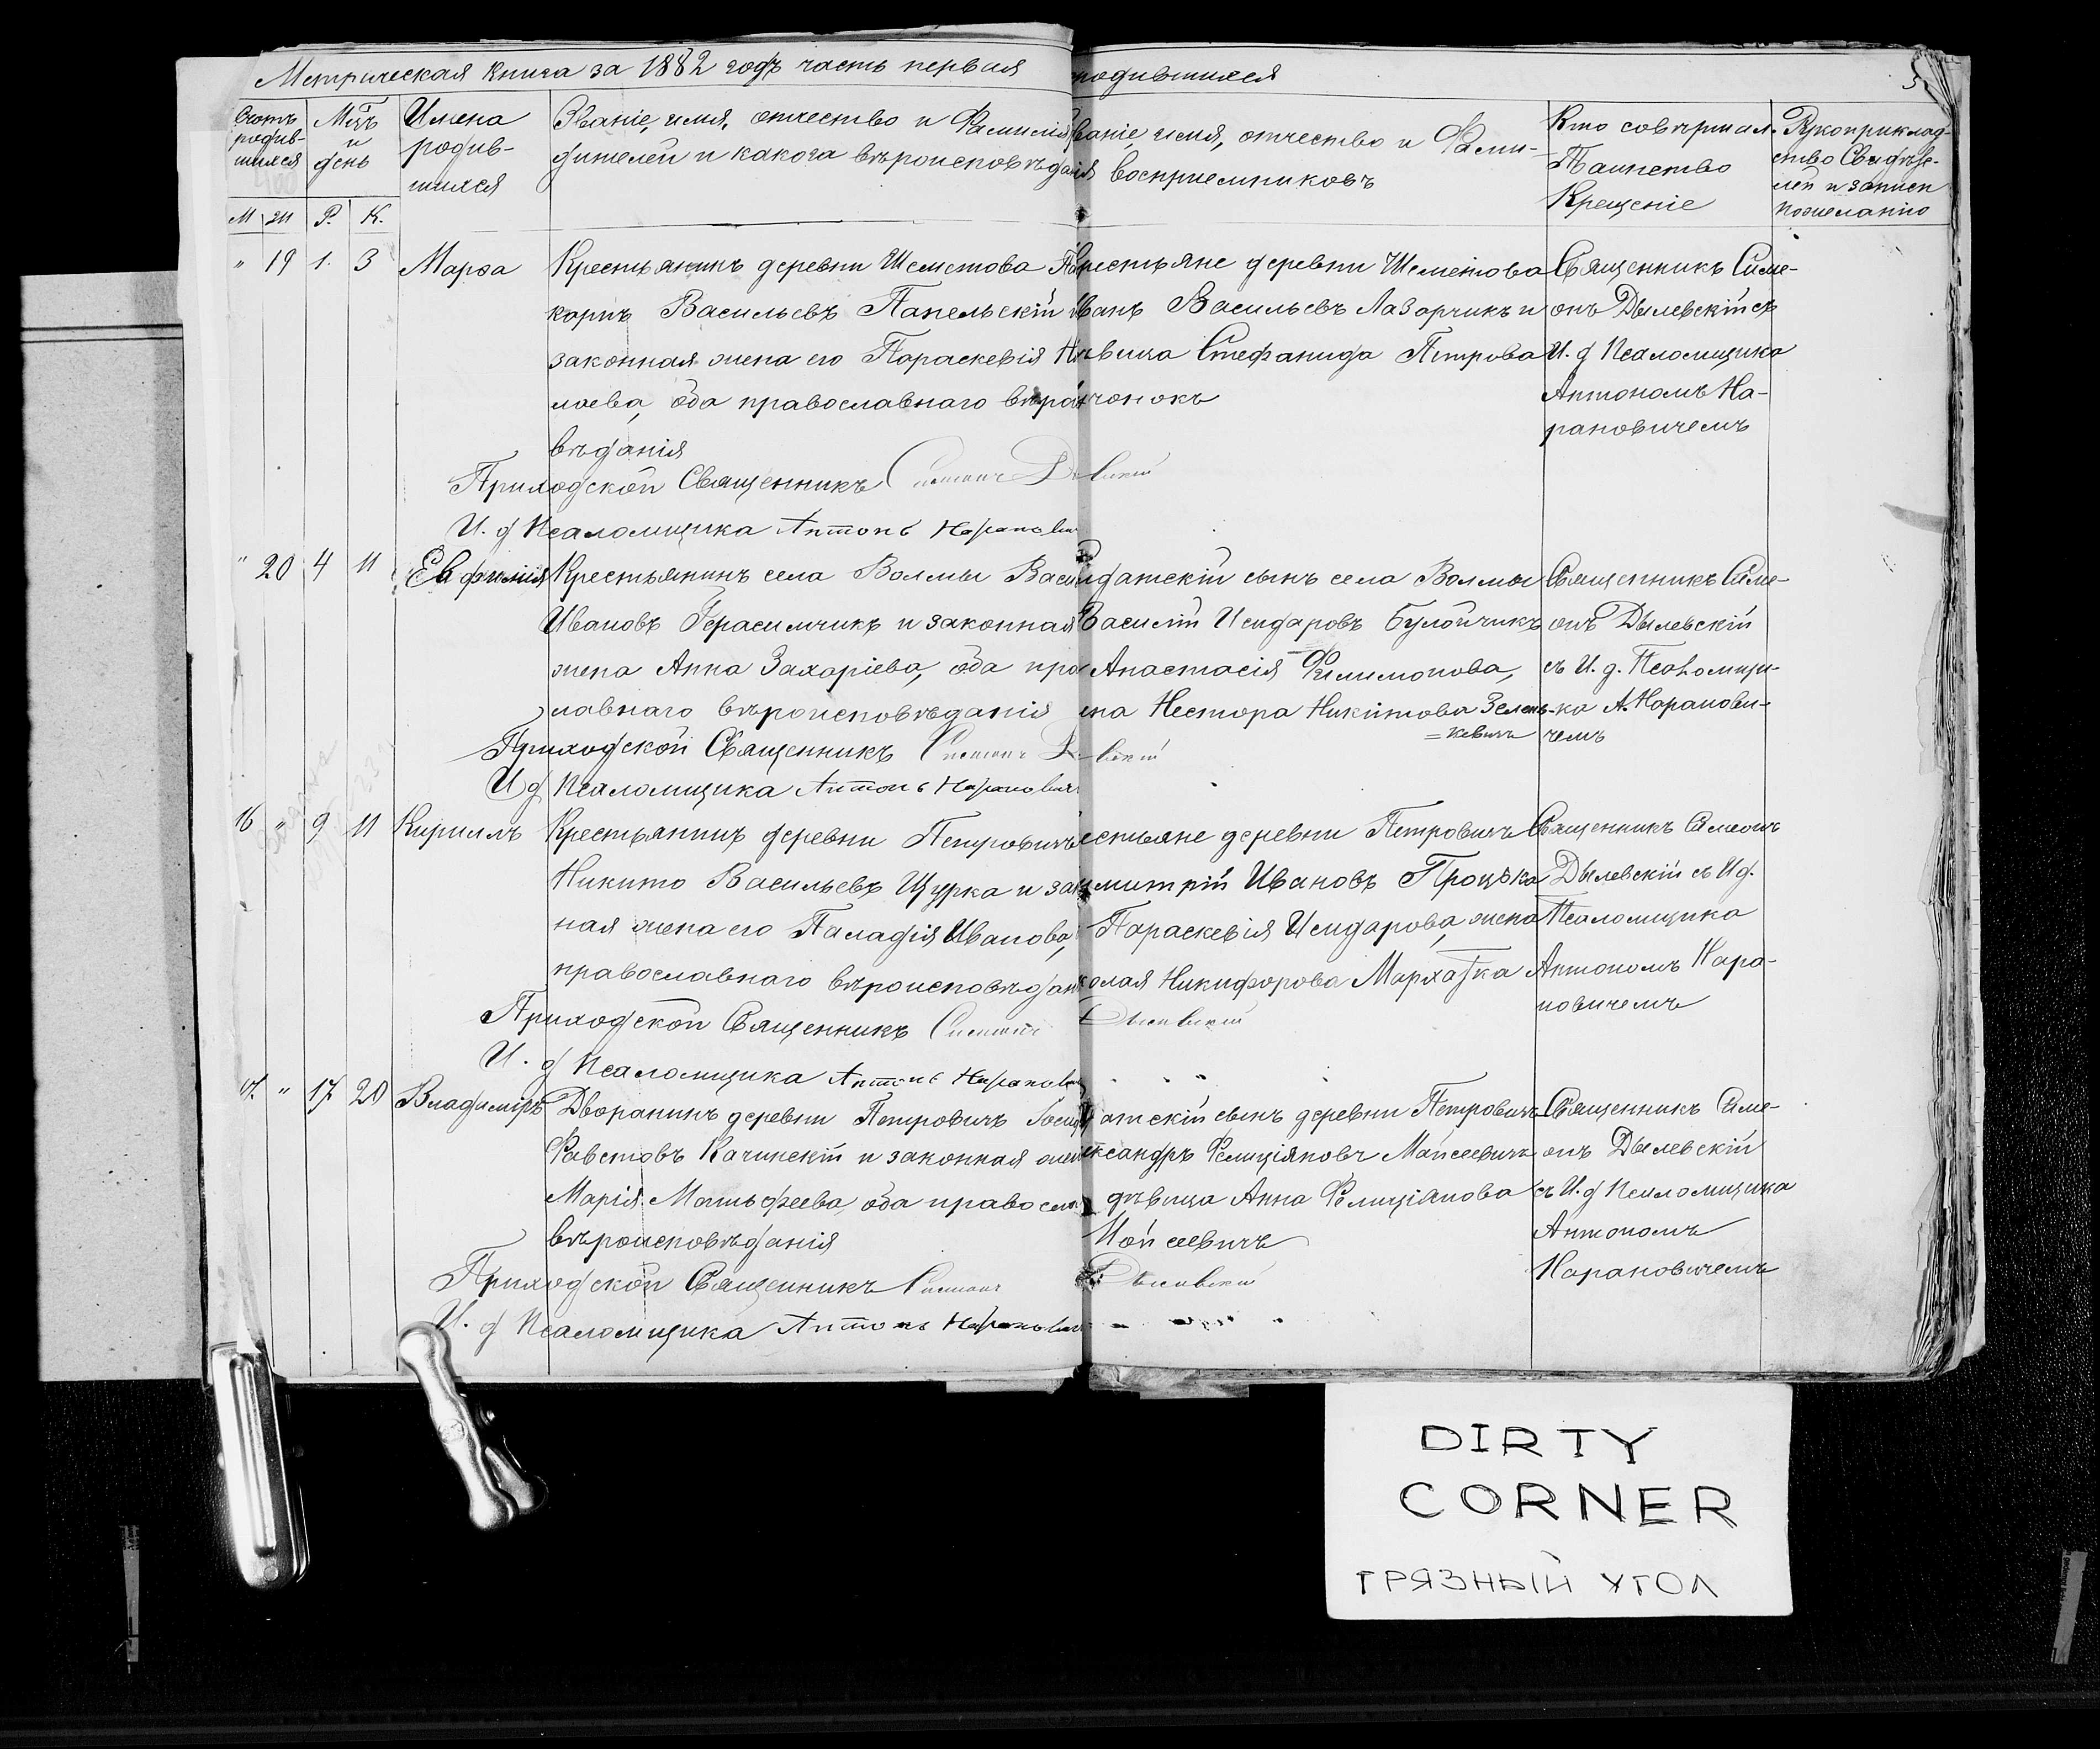 Метрическая книга за 1882 годъ часть первая родившихся
5.
Счетъ родив-шихся
Мѣцъ и день
Имена родив-шихся
Званіе, имя, отчество и Фамилія
дителей и какога вѣроисповѣданія
Званіе, имя, отчество и Фами-
восприемниковъ
Кто совершал.
Таинство
Крещеніе
Рукоприклад-
ство Свидѣте-
лей и записи
пожеланію
М Ж Р. К.
" 19 1. 3 Марѳа
Крестьянинъ деревни Шеметова
Васильевъ Папельскій
законная жена его Параскевія Ни
лаева, оба православнаго вѣрои
вѣданія
Крестьяне деревни Шеметова
Иванъ Васильевъ Лазарчикъ и
дѣвица Стефанида Петрова
чонокъ
Священникъ Симе-
онъ Дылевскій съ
И. д Псаломщика
Антономъ На-
рановичемъ
Приходской Священникъ Симеонъ Дылевскій
И. д Псаломщика Антонъ Нарановичъ
" 20 4 11 Евфимія
Крестьянинъ села Волмы Васи
Ивановъ Герасимчикъ и законная
жена Анна Захаріева, оба пра
лавнаго вѣроисповѣданія
датскій сынъ села Волмы
Василій Исидаровъ Булойчикъ
Анастасія Филимонова,
жена Нестора Никитова Зелень-
=кевича
Священникъ Симе-
онъ Дылевскій
съ И. д. Псаломщи-
ка А. Наранови-
чемъ
Приходской Священникъ Симеонъ Дылевскій
И д Псаломщика Антонъ Нарановичъ
16 " 9 11 Кириллъ
Крестьянинъ деревни Петровичъ
Никита Васильевъ Щурка и зак
ная жена его Паладія Иванова,
православнаго вѣроисповѣдан
естьяне деревни Петровичъ
Дмитрій Ивановъ Процъка
Параскевія Исидарова, жена
колая Никифорова Мархатка
Священникъ Симеонъ
Дылевскій съ И д.
Псаломщика
Антономъ Нара-
новичемъ
Приходской Священникъ Симеонъ Дылевскій
И. д Псаломщика Антонъ Нарановичъ
17. " 17 20 Владиміръ
Дворанинъ деревни Петровичъ Іосиф
Фавстовъ Качинскій и законная жена
Марія Матьфеева, оба правосла
вѣроисповѣданія
датскій сынъ деревни Петровичъ
Александръ Фелиціяновъ Мойсеевичъ
дѣвица Анна Фелиціянова
Мойсеевичъ
Священникъ Симе-
онъ Дылевскій
съ И. д Псаломщика
Антономъ
Нарановичемъ
Приходской Священникъ Симеонъ Дылевскій
И. д Псаломщика Антонъ Нарановичъ
DIRTY
CORNER
ГРЯЗНЫЙ УГОЛ